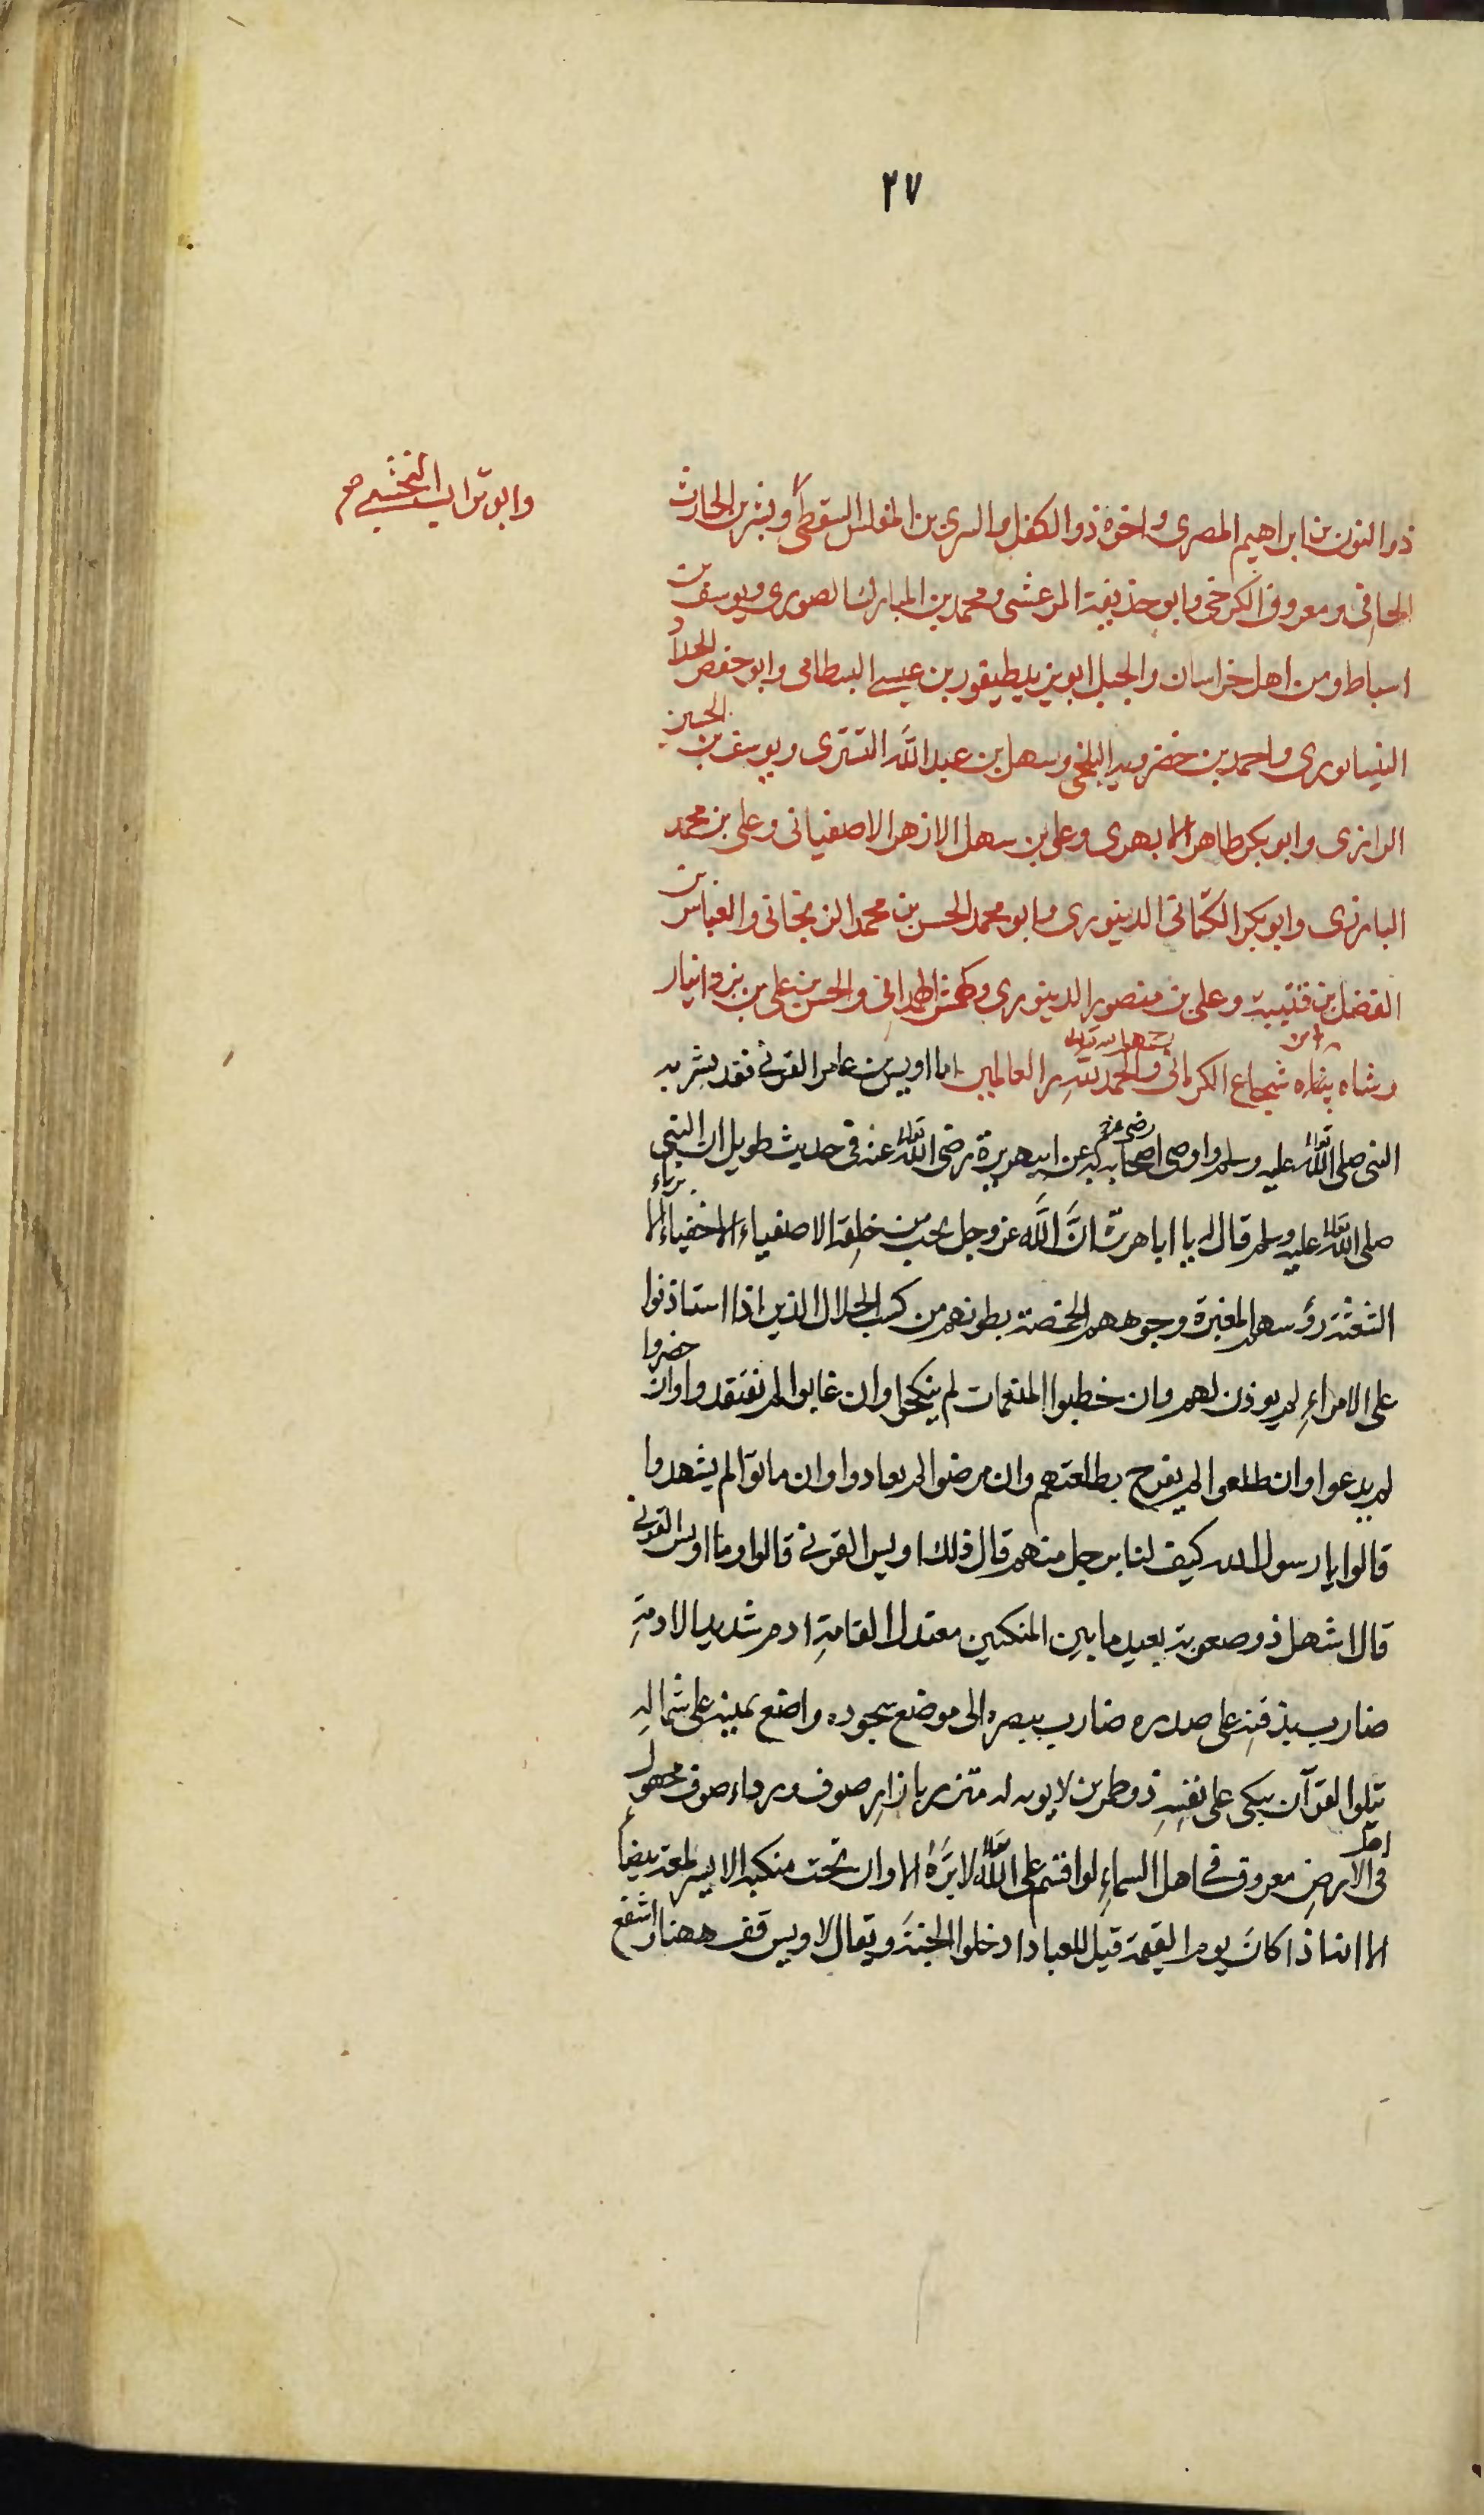 ٢٧
ذو النون بن ابراهيم المصرى واخوه ذو الكفل والسرى بن المغلس السقطى وبشر بن الحارث
وابو تراب النخشبى صح
الحافى ومعروف الكرخى وابو حذيفة المرعشى ومحمد بن المبارك الصورى ويوسف بن
اسباط ومن اهل خراسان والجبل ابو يزيد طيفور بن عيسى البسطامى وابو حفص الحداد
النيسابورى واحمد بن خضرويه البلخى وسهل بن عبد الله التسترى ويوسف بن الحسين
الرازى وابو بكر طاهر الابهرى وعلى بن سهل الازهر الاصفهانى وعلى بن محمد
البارزى وابو بكر الكتانى الدينورى وابو محمد الحسن بن محمد الزنجانى والعباس بن
الفضل بن قتيبة وعلى بن منصور الدينورى وكهمش الهمدانى والحسن بن على بن يزدانيار
وشاه شجاع الكرمانى والحمد لله رب العالمين اما اويس بن عامر القرنى فقد بشر به
النبى صلى الله تعالى عليه وسلم واوصى اصحابه به عن ابى هريرة رضى الله تعالى عنه فى حديث طويل ان النبى
صلى الله تعالى عليه وسلم قال له يا ابا هرّ انّ الله عز وجل يحب من خلقه الاصفياء الاخفياء الابرياء
الشعثة رؤسهم المغبرة وجوههم الخمصة بطونهم من كسب الحلال الذين اذا استاذنوا
على الامراء لم يوذن لهم وان خطبوا المنعمات لم ينكحوا وان غابوا لم تفتقدوا وان حضروا
لم يدعوا وان طلعوا لم يفرح بطلعتهم وان مرضوا لم يعادوا وان ماتوا لم يشهدوا
قالوا يا رسول الله كيف لنا برجل منهم قال ذلك اويس القرنى قالوا وما اويس القرنى
قال اشهل ذو صهوبة بعيد ما بين المنكبين معتدل القامة ادم شديد الادمة
ضارب بذقنه على صدره ضارب ببصره الى موضع سجوده واضع يمينه على شماله
يتلوا القرآن يبكى على نفسه ذو طمرين لا يوبه له متزر بازار صوف ورداء صوف مجهول
فى اهل الارض معروف فى اهل السماء لو اقسم على الله تعالى لابرّه الا وان تحت منكبه الايسر لمعة بيضاء
الا انه اذا كان يوم القيمة قيل للعباد ادخلوا الجنة ويقال لاويس قف ههنا اشفع